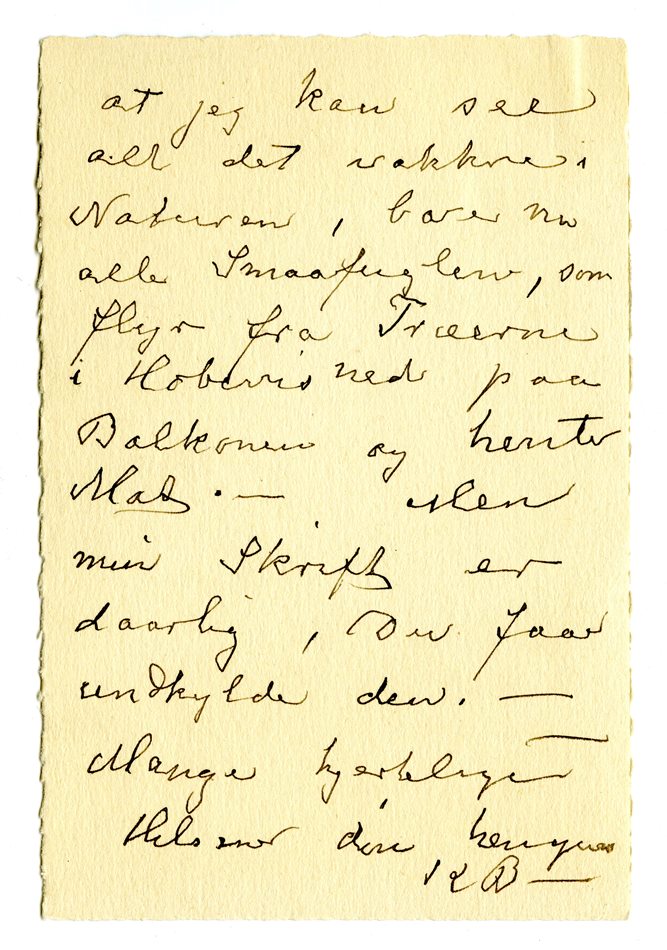 at jeg kan see
alt det vakkre i
Naturen, bare nu
alle Smaafuglene, som
flyr fra Træerne
i ned paa
Balkonen og henter
Mat. — Men
min Skrift er
daarlig, Du faar
undskylde den. —
Mange hjertelige
Hilsener din hengivne
KB —